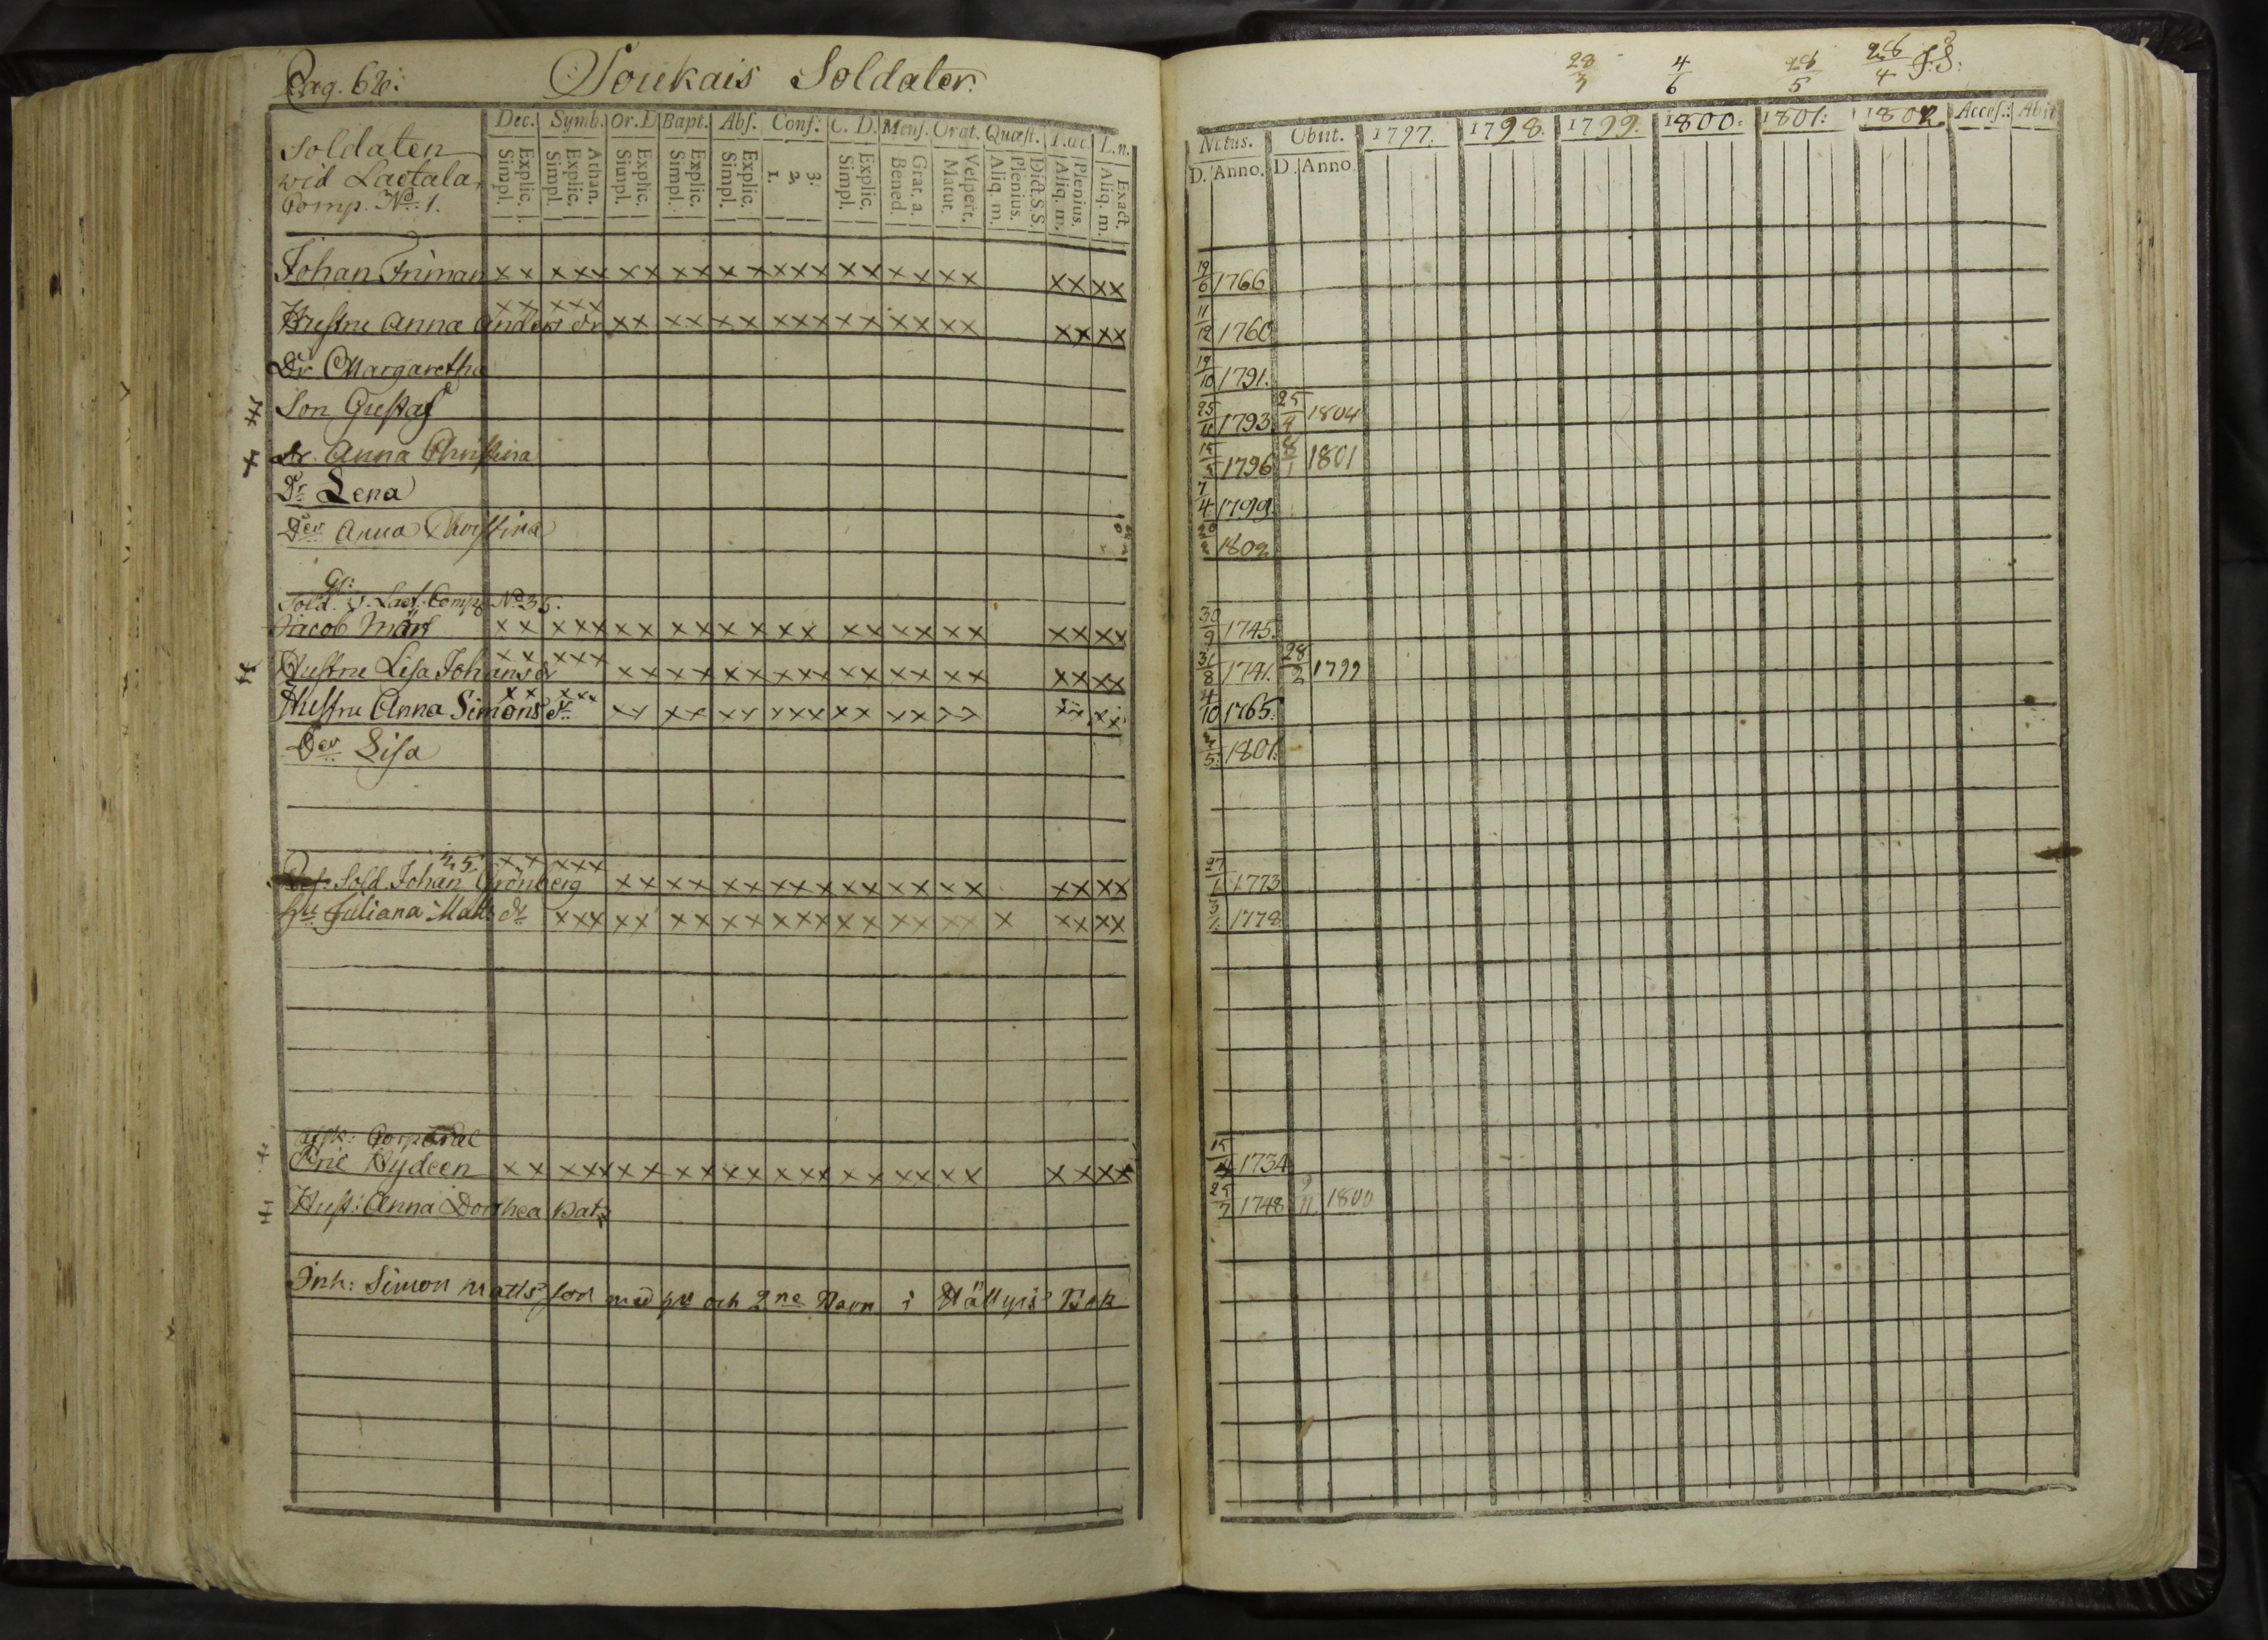 Pag. 62:
Soukais Soldater.
Dec. Symb. Or. D Bapt. Abs. Conf: C. D. Mens. Orat. Quæst. T.œc L.n.
Soldaten
wid Lactala
Comp. No: 1.
Simpl. Explic. Simpl. Explic. Athan. Simpl. Explic. Simpl. Explic. Simpl. Explic. 1. 2. 3: Simpl. Explic. Bened. Grat. a. Matut. Vespert. Aliq. m. Plenius. Dict. S.S. Aliq. m. Plenius. Aliq. m. Exact.
Johan Friman x x x x x x x x x x x x x x x x x x x x x x x x
x x x x x
Hustru Anna Anders dr x x x x x x x x x x x x x x x x x x x
Dr Margaretha
Son Gustaf
Dr. Anna Christina
Dr Lena
Der Anna Christina
Sold. v. Lact. Comp. No 35.
Jacob x x x x x x x x x x x x x x x x x x x x x x x
x x x x x
Hustru Lisa Johans dr x x x x x x x x x x x x x x x x x x x
x x x x x
Hustru Anna Simons dr x x x x x x x x x x x x x x x x x x x
Der Lisa
n 5. x x x x x
Sold. Johan Grönberg x x x x x x x x x x x x x x x x x x x
hu Juliana Mats dr x x x x x x x x x x x x x x x x x x x x x x x
Afsk: Corporal
Eric Nydeen x x x x x x x x x x x x x x x x x x x x x x x x
Hust: Anna Dorthea
Inh: Simon Matts son med hu och 2ne Barn i Bok
28/3 4/6 28/5 28/4 J:S:
Natus. Obiit. 1797. 1798. 1799. 1800: 1801: 1802 Access: Abit
D. Anno. D. Anno.
19/6 1766
11/12 1760
19/10 1791.
25/11 1793 25/4 1804
1796 8/1 1801
7/4 1799.
1802
30/9 1745.
31/8 1741. 28/2 1799
4/10 1765.
1801:
27/1 1773
1778
1734
25/7 1748 9/11 1800